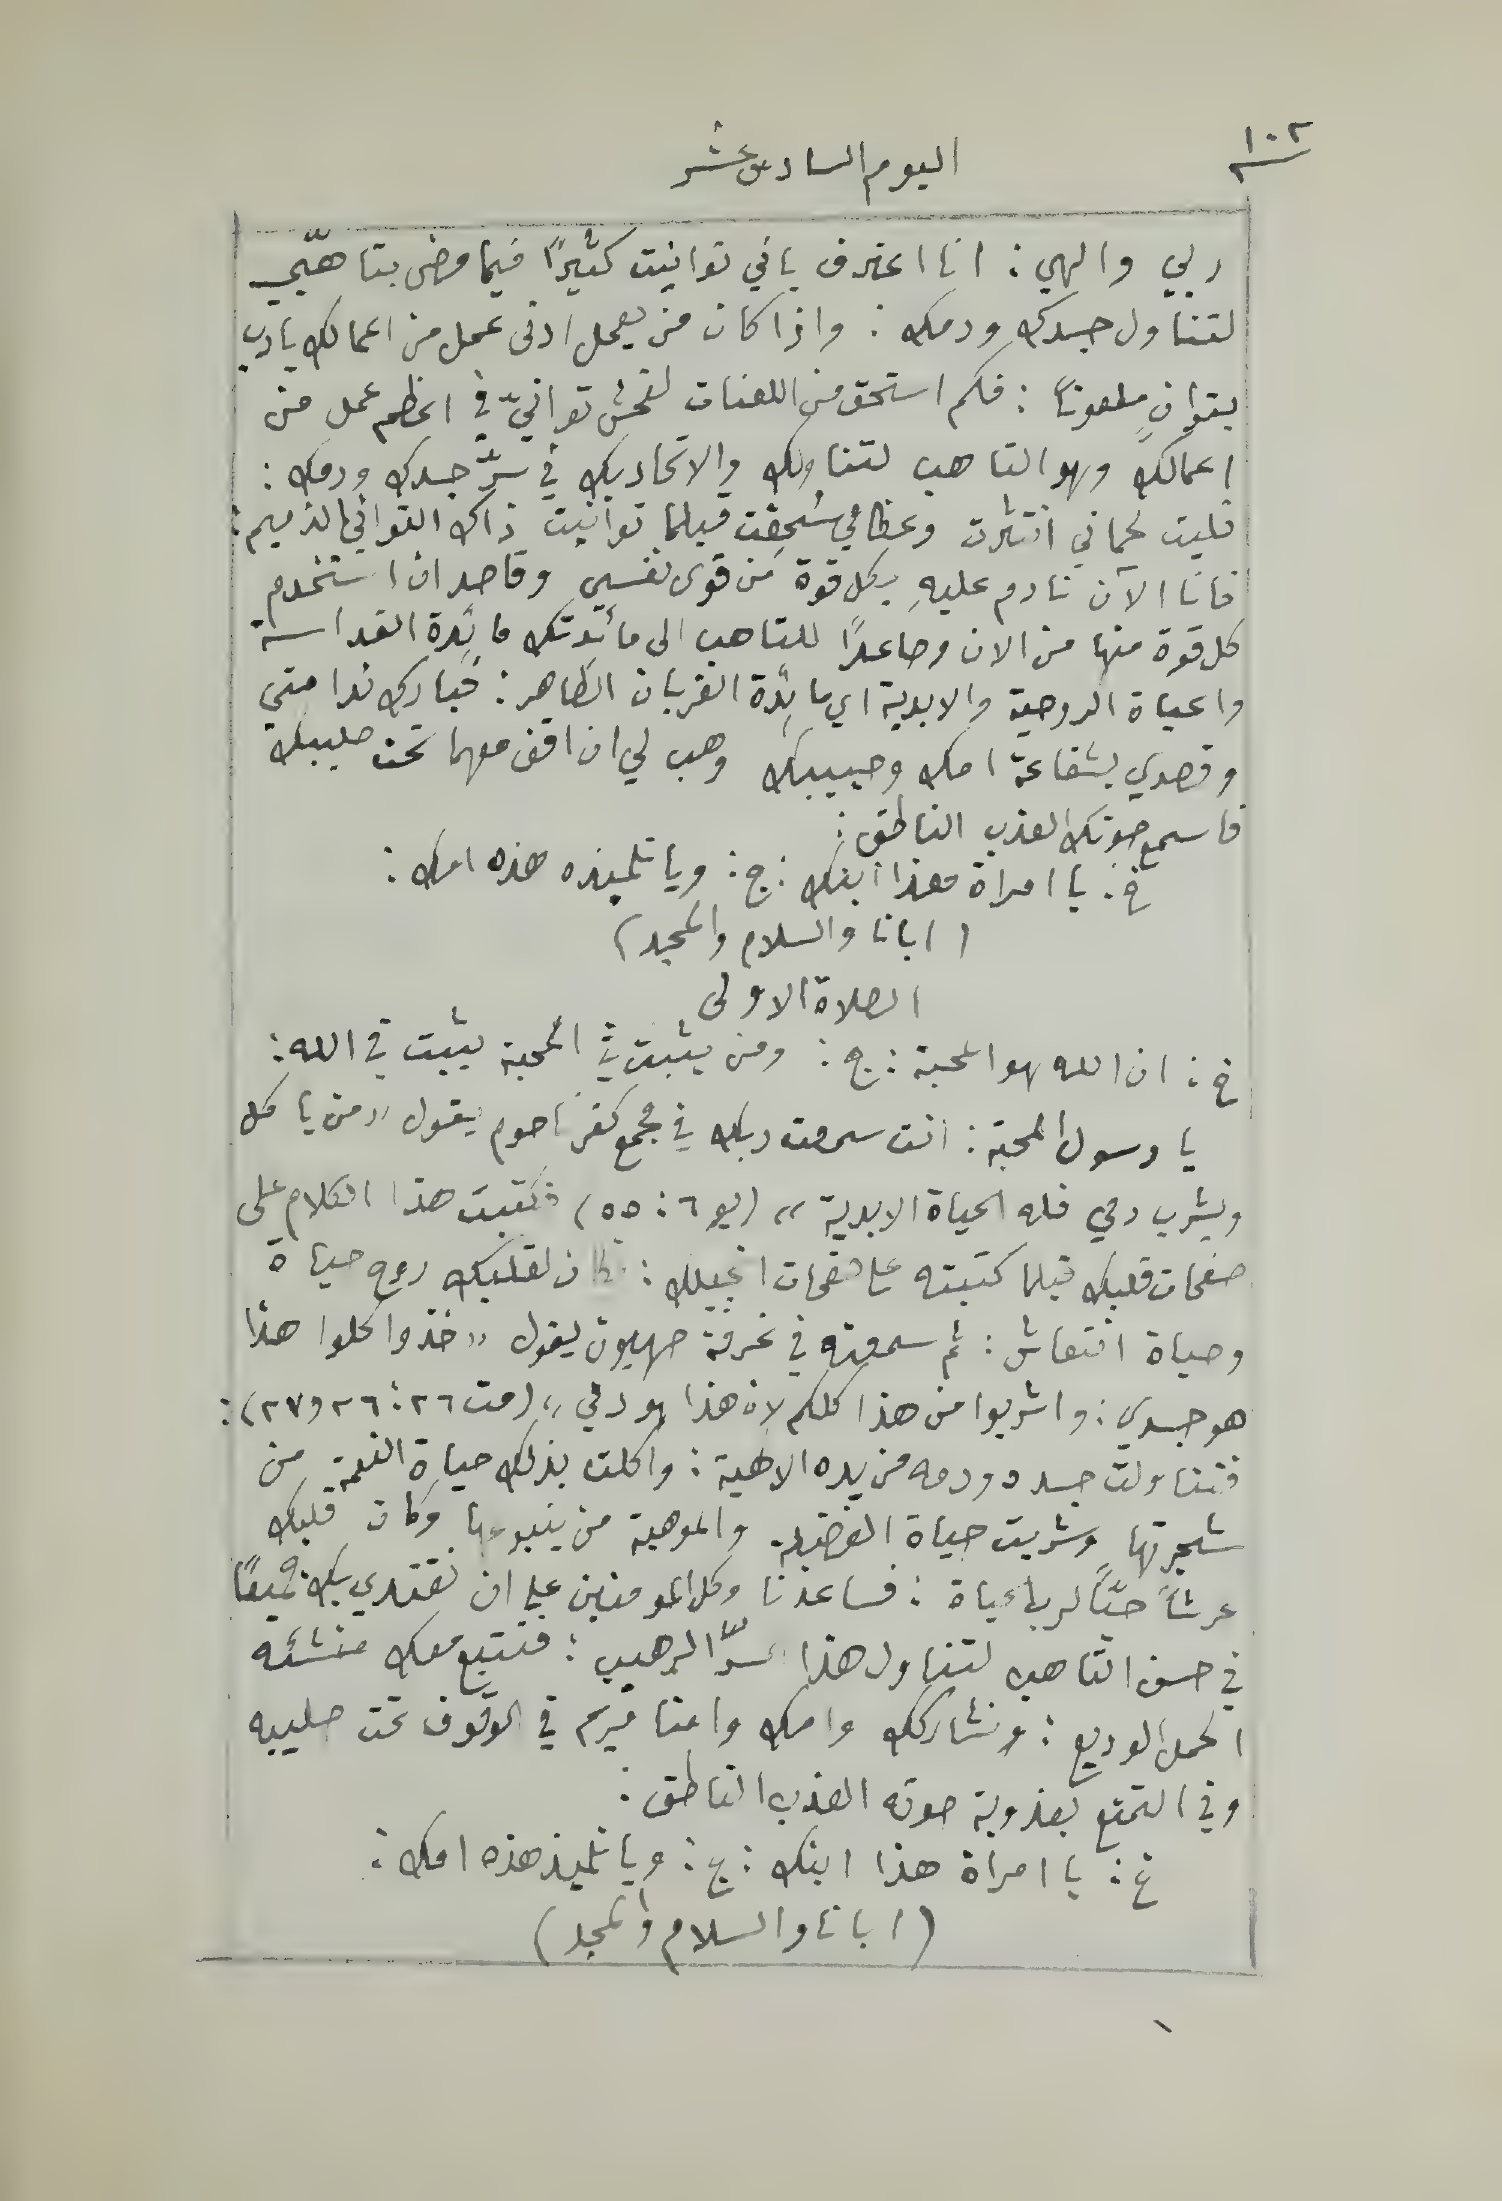 ١٠٢
اليوم السادس عشر
ربي والهي : انا اعترف باني توانيت كثيرًا فيما مضى بتاهبي
لتناول جسدك ودمك : واذا كان من يعمل ادنى عمل من اعمالك يا رب
بتوانٍ ملعونًا : فكم استحق من اللعنات لفحش توانيّ في اعظم عمل من
اعمالك وهو التاهب لتناولك والاتحاد بك في سرّ جسدك ودمك :
فليت لحماني انتثرت وعظامي سُحقت قبلما توانيت ذاك التواني الذميم :
فانا الآن نادم عليهِ بكل قوة من قوى نفسي وقاصد ان استخدم
كل قوة منها من الان وصاعدًا للتاهب الى مائدتك مائدة القداسة
والحياة الروحية والابدية اي مائدة القربان الطاهر : فبارك ندامتي
وقصدي بشفاعة امك وحبيبك وهب لي ان اقف معهما تحت صليبك
فاسمع صوتك العذب الناطق :
خ : يا امراة هوذا ابنك : ج : ويا تلميذه هذه امك :
(ابانا والسلام والمجد)
الصلاة الاولى
خ : ان الله هو المحبة : ج : ومن يثبت في المحبة يثبت في الله :
يا رسول المحبة : انت سمعت ربك في مجمع كفرناحوم يقول « من ياكل
ويشرب دمي فله الحياة الابدية » (يو ٦ : ٥٥) فكتبت هذا الكلام على
صفحات قلبك قبلما كتبته على صفحات انجيلك : فكان لقلبك روح حياة
وحياة انتعاش : ثم سمعته في غرفة صهيون يقول « خذوا كلوا هذا
هو جسدي : واشربوا من هذا كلكم لان هذا هو دمي » (مت ٢٦ : ٢٦ و٢٧) :
فتناولت جسده ودمه من يده الالهية : واكلت بذلك حياة النعمة من
شجرتها وشربت حياة الفضيلة والموهبة من ينبوعها وكان قلبك
عرشًا حيًّا لرب الحياة : فساعدنا وكل المومنين على ان نقتدي بك
في حسن التاهب لتناول هذا السرّ الرهيب : فنتبع معك منشئه
الحمل الوديع : ونشاركك وامك وامنا مريم في الوقوف تحت صليبه
وفي التمتع بعذوبة صوته العذب الناطق :
خ : يا امراة هذا ابنك : ج : ويا تلميذ هذه امك :
(ابانا والسلام والمجد)